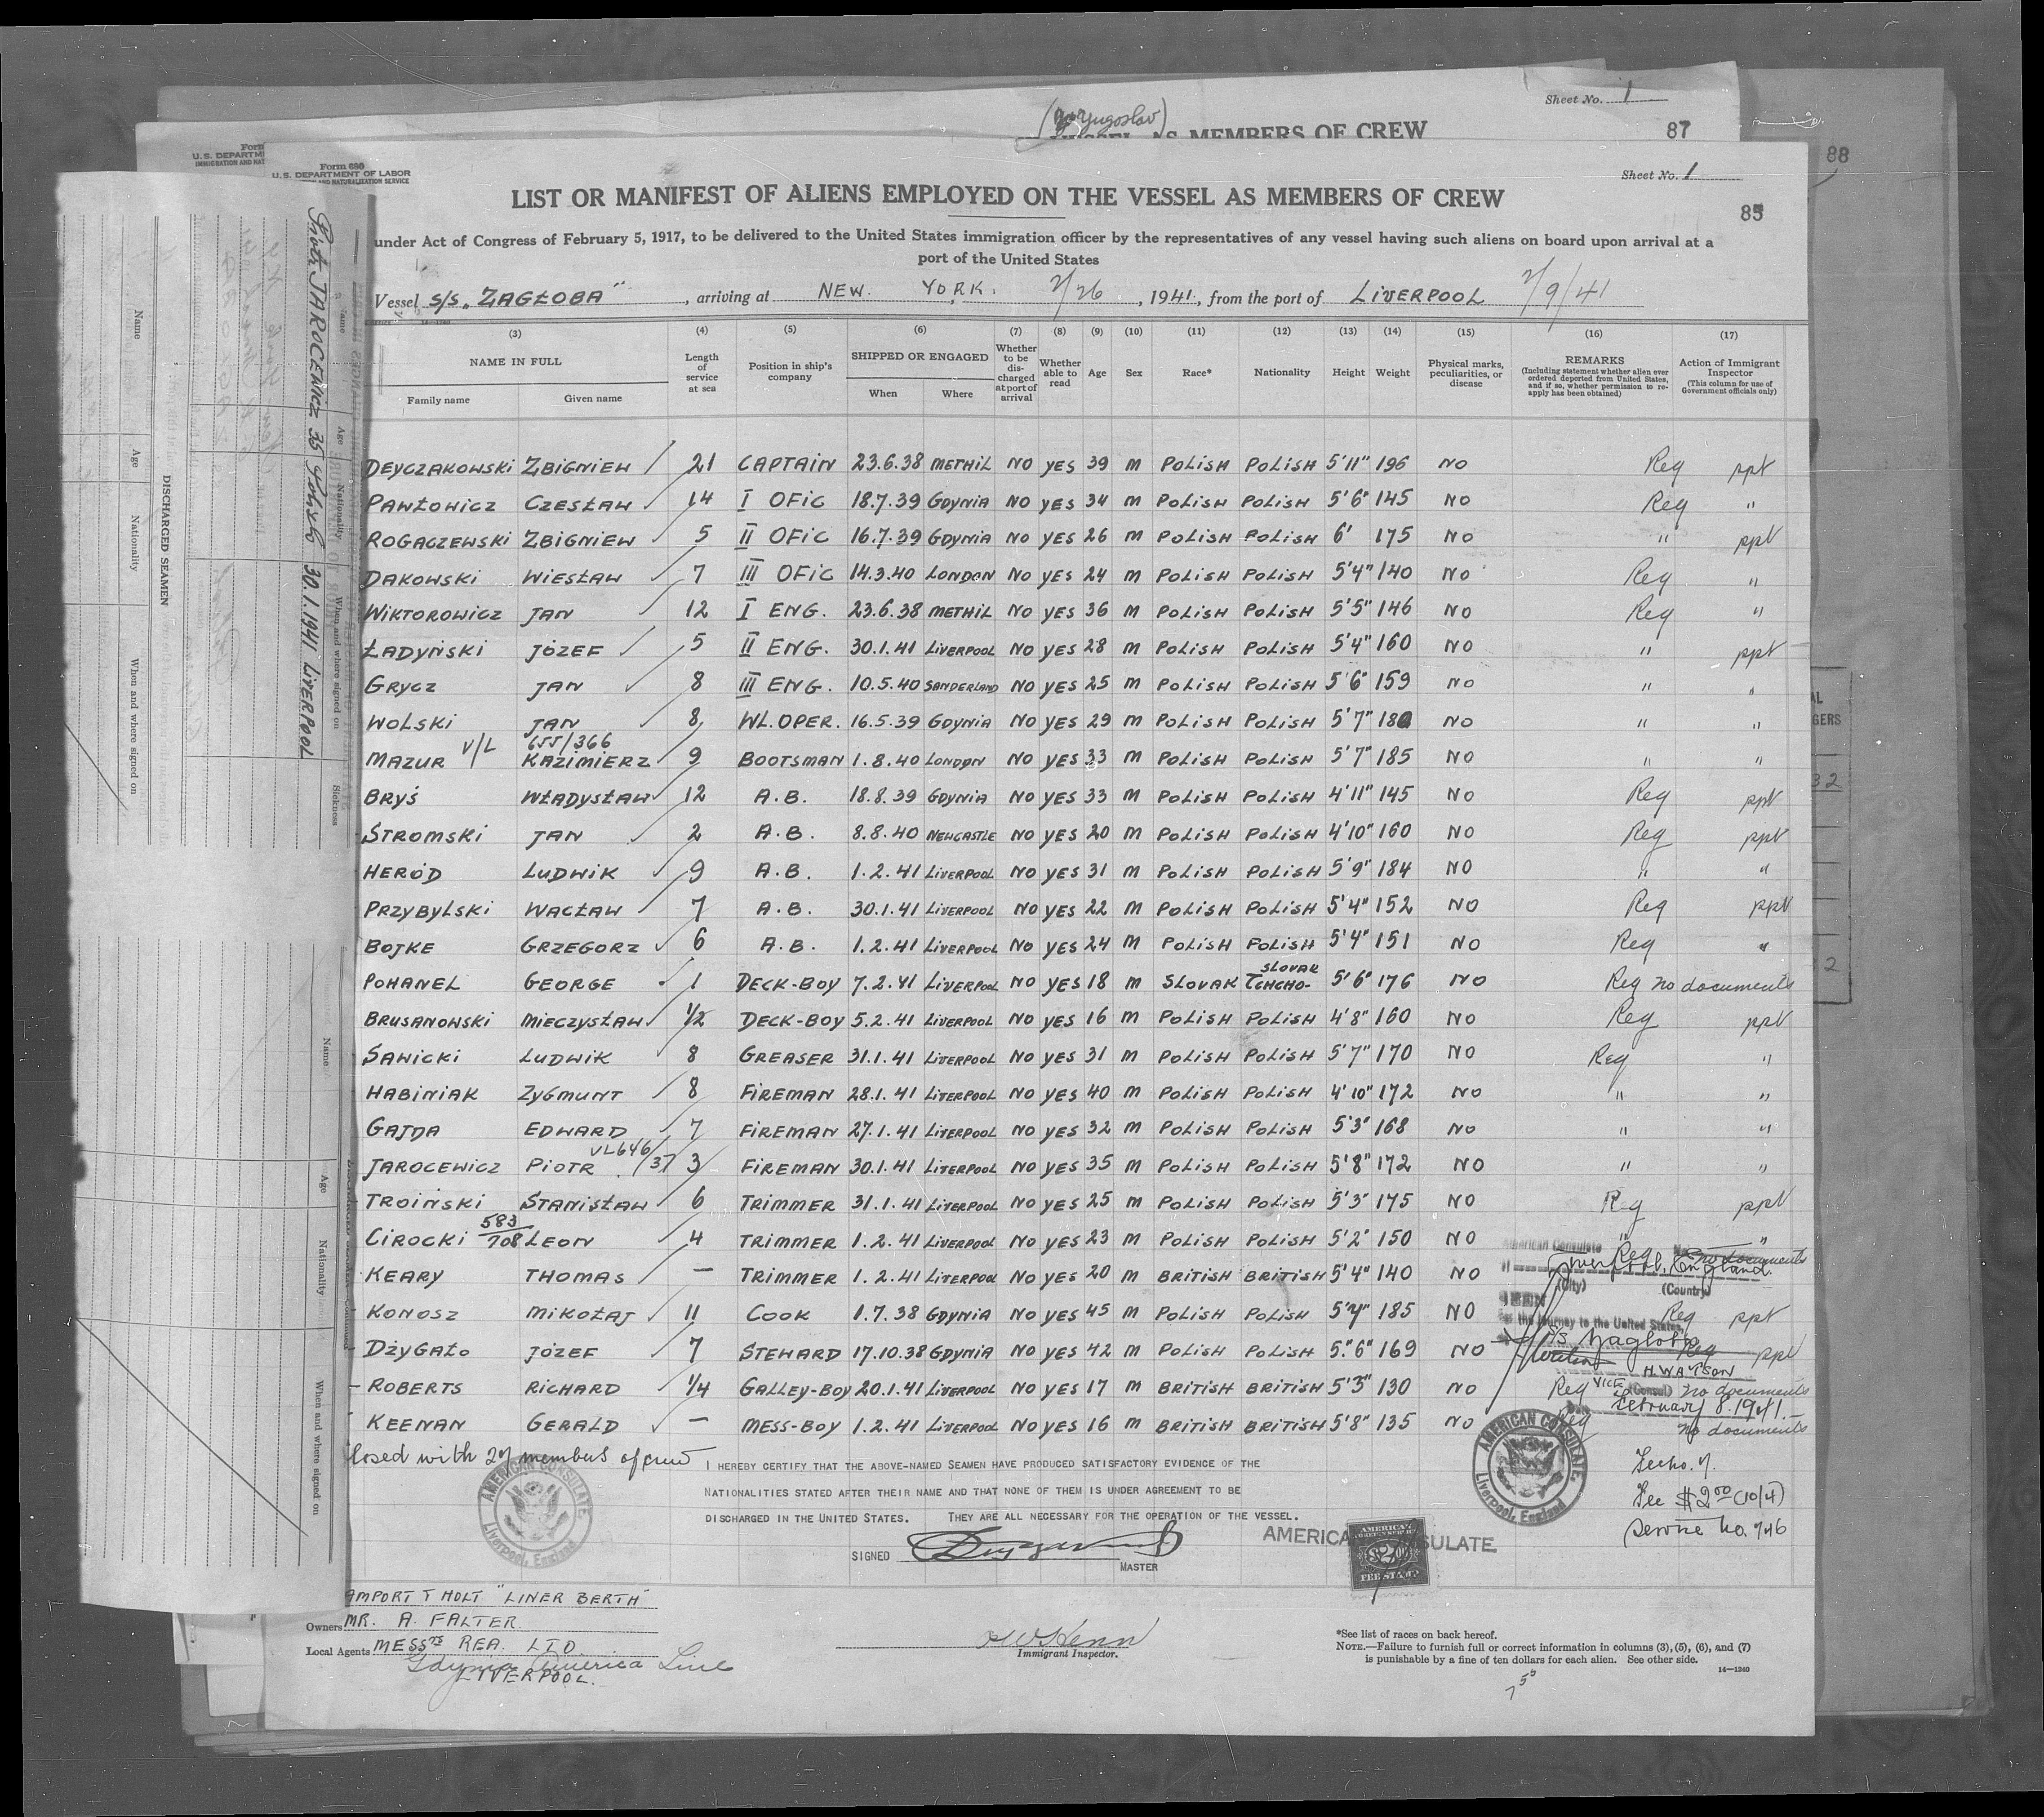 Sheet No. 1
(Yugoslav)
VESSEL AS MEMBERS OF CREW
87
88
Form 680
U.S. DEPARTMENT OF LABOR
IMMIGRATION AND NATURALIZATION SERVICE
Sheet No. 1
LIST OR MANIFEST OF ALIENS EMPLOYED ON THE VESSEL AS MEMBERS OF CREW
85
under Act of Congress of February 5, 1917, to be delivered to the United States immigration officer by the representatives of any vessel having such aliens on board upon arrival at a
port of the United States
Vessel S/S. "ZAGŁOBA", arriving at NEW YORK. 2/26, 1941, from the port of LIVERPOOL 2/9/41
(3) (4) (5) (6) (7) (8) (9) (10) (11) (12) (13) (14) (15) (16) (17)
NAME IN FULL
Family name Given name
Length of service at sea
Position in ship's company
SHIPPED OR ENGAGED
When Where
Whether to be discharged at port of arrival
Whether able to read
Age
Sex
Race*
Nationality
Height
Weight
Physical marks, peculiarities, or disease
REMARKS
(Including statement whether alien ever ordered deported from United States, and if so, whether permission to reapply has been obtained)
Action of Immigrant Inspector
(This column for use of Government officials only)
DEYCZAKOWSKI ZBIGNIEW 21 CAPTAIN 23.6.38 METHIL NO YES 39 M POLISH POLISH 5'11" 196 NO Reg ppt
PAWŁOWICZ CZESŁAW 14 I OFIC 18.7.39 GDYNIA NO YES 34 M POLISH POLISH 5'6" 145 NO Reg "
ROGACZEWSKI ZBIGNIEW 5 II OFIC 16.7.39 GDYNIA NO YES 26 M POLISH POLISH 6' 175 NO " ppt
DAKOWSKI WIESŁAW 7 III OFIC 14.3.40 LONDON NO YES 24 M POLISH POLISH 5'4" 140 NO Reg "
WIKTOROWICZ JAN 12 I ENG. 23.6.38 METHIL NO YES 36 M POLISH POLISH 5'5" 146 NO Reg "
ŁADYŃSKI JÓZEF 5 II ENG. 30.1.41 LIVERPOOL NO YES 28 M POLISH POLISH 5'4" 160 NO " ppt
GRYCZ JAN 8 III ENG. 10.5.40 SANDERLAND NO YES 25 M POLISH POLISH 5'6" 159 NO " "
WOLSKI JAN 8 WL. OPER. 16.5.39 GDYNIA NO YES 29 M POLISH POLISH 5'7" 180 NO " "
V/L 655/366
MAZUR KAZIMIERZ 9 BOOTSMAN 1.8.40 LONDON NO YES 33 M POLISH POLISH 5'7" 185 NO " "
BRYŚ WŁADYSŁAW 12 A.B. 18.8.39 GDYNIA NO YES 33 M POLISH POLISH 4'11" 145 NO Reg ppt
STROMSKI JAN 2 A.B. 8.8.40 NEWCASTLE NO YES 20 M POLISH POLISH 4'10" 160 NO Reg ppt
HERÓD LUDWIK 9 A.B. 1.2.41 LIVERPOOL NO YES 31 M POLISH POLISH 5'9" 184 NO " "
PRZYBYLSKI WACŁAW 7 A.B. 30.1.41 LIVERPOOL NO YES 22 M POLISH POLISH 5'4" 152 NO Reg ppt
BOJKE GRZEGORZ 6 A.B. 1.2.41 LIVERPOOL NO YES 24 M POLISH POLISH 5'4" 151 NO Reg "
POHANEL GEORGE 1 DECK-BOY 7.2.41 LIVERPOOL NO YES 18 M SLOVAK TCHCHO-SLOVAK 5'6" 176 NO Reg no documents
BRUSANOWSKI MIECZYSŁAW 1/2 DECK-BOY 5.2.41 LIVERPOOL NO YES 16 M POLISH POLISH 4'8" 160 NO Reg ppt
SAWICKI LUDWIK 8 GREASER 31.1.41 LIVERPOOL NO YES 31 M POLISH POLISH 5'7" 170 NO Reg "
HABINIAK ZYGMUNT 8 FIREMAN 28.1.41 LIVERPOOL NO YES 40 M POLISH POLISH 4'10" 172 NO " "
GAJDA EDWARD 7 FIREMAN 27.1.41 LIVERPOOL NO YES 32 M POLISH POLISH 5'3" 168 NO " "
VL646/37
JAROCEWICZ PIOTR 3 FIREMAN 30.1.41 LIVERPOOL NO YES 35 M POLISH POLISH 5'8" 172 NO " "
TROIŃSKI STANISŁAW 6 TRIMMER 31.1.41 LIVERPOOL NO YES 25 M POLISH POLISH 5'3" 175 NO Reg ppt
CIROCKI 583/708 LEON 4 TRIMMER 1.2.41 LIVERPOOL NO YES 23 M POLISH POLISH 5'2" 150 NO " "
KEARY THOMAS — TRIMMER 1.2.41 LIVERPOOL NO YES 20 M BRITISH BRITISH 5'4" 140 NO Reg no documents
KONOSZ MIKOŁAJ 11 COOK 1.7.38 GDYNIA NO YES 45 M POLISH POLISH 5'4" 185 NO Reg ppt
DŻYGAŁO JÓZEF 7 STEWARD 17.10.38 GDYNIA NO YES 42 M POLISH POLISH 5'6" 169 NO Reg ppt
ROBERTS RICHARD 1/4 GALLEY-BOY 20.1.41 LIVERPOOL NO YES 17 M BRITISH BRITISH 5'3" 130 NO Reg no documents
KEENAN GERALD — MESS-BOY 1.2.41 LIVERPOOL NO YES 16 M BRITISH BRITISH 5'8" 135 NO Reg no documents
American Consulate
Liverpool, England
(City) (Country)
SEEN
For the journey to the United States,
S/S Zagloba
H. WATSON
VICE Consul
February 8, 1941.
losed with 27 members of crew
I HEREBY CERTIFY THAT THE ABOVE-NAMED SEAMEN HAVE PRODUCED SATISFACTORY EVIDENCE OF THE
NATIONALITIES STATED AFTER THEIR NAME AND THAT NONE OF THEM IS UNDER AGREEMENT TO BE
DISCHARGED IN THE UNITED STATES. THEY ARE ALL NECESSARY FOR THE OPERATION OF THE VESSEL.
SIGNED
MASTER
AMERICAN CONSULATE
Liverpool, England
AMERICAN CONSULATE
Liverpool, England
AMERICAN CONSULATE
FEE STAMP
Fee $2.00 (10/4)
Service No. 746
AMPORT & HOLT "LINER BERTH"
Owners MR. A. FALTER.
Local Agents MESSRS REA. LTD
Gdynia America Line
LIVERPOOL.
Immigrant Inspector.
*See list of races on back hereof.
NOTE.—Failure to furnish full or correct information in columns (3), (5), (6), and (7)
is punishable by a fine of ten dollars for each alien. See other side.
14—1240
Piotr JAROCEWICZ 35 Polish 30.1.1941 LIVERPOOL
DISCHARGED SEAMEN
Name Age Nationality When and where signed on
Name Age Nationality When and where signed on